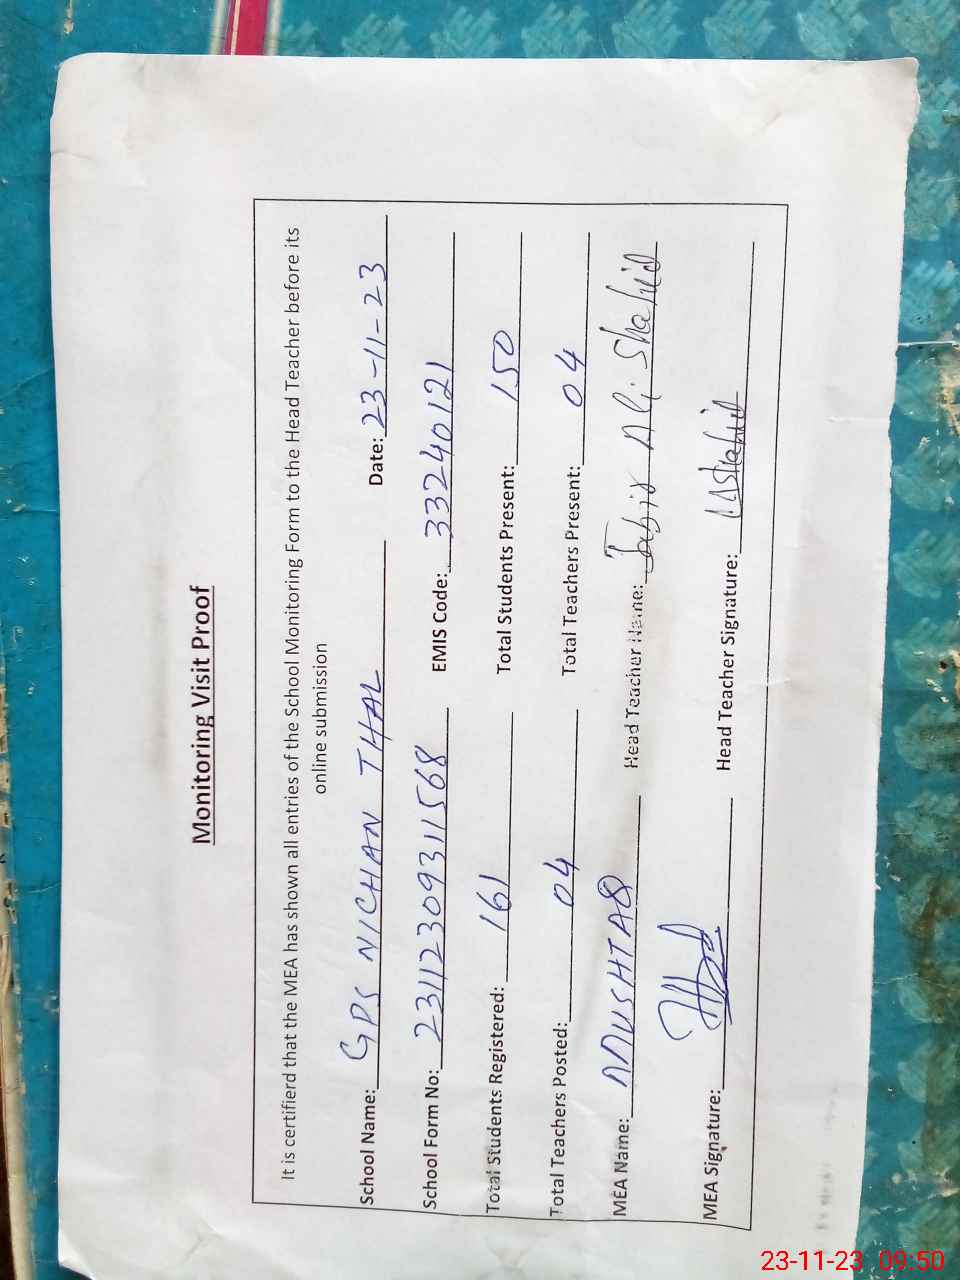 Monitoring Visit Proof
It is certifierd that the MEA has shown all entries of the School Monitoring Form to the Head Teacher before its
online submission
School Name: GPS NICHAN THAL Date: 23-11-23
School Form No: 231123093111568 EMIS Code: 33240121
Total Students Registered: 161 Total Students Present: 150
Total Teachers Posted: 04 Total Teachers Present: 04
MEA Name: MUSHTAQ Head Teacher Name: Ali Shahid
MEA Signature: Head Teacher Signature:
23-11-23 09:50